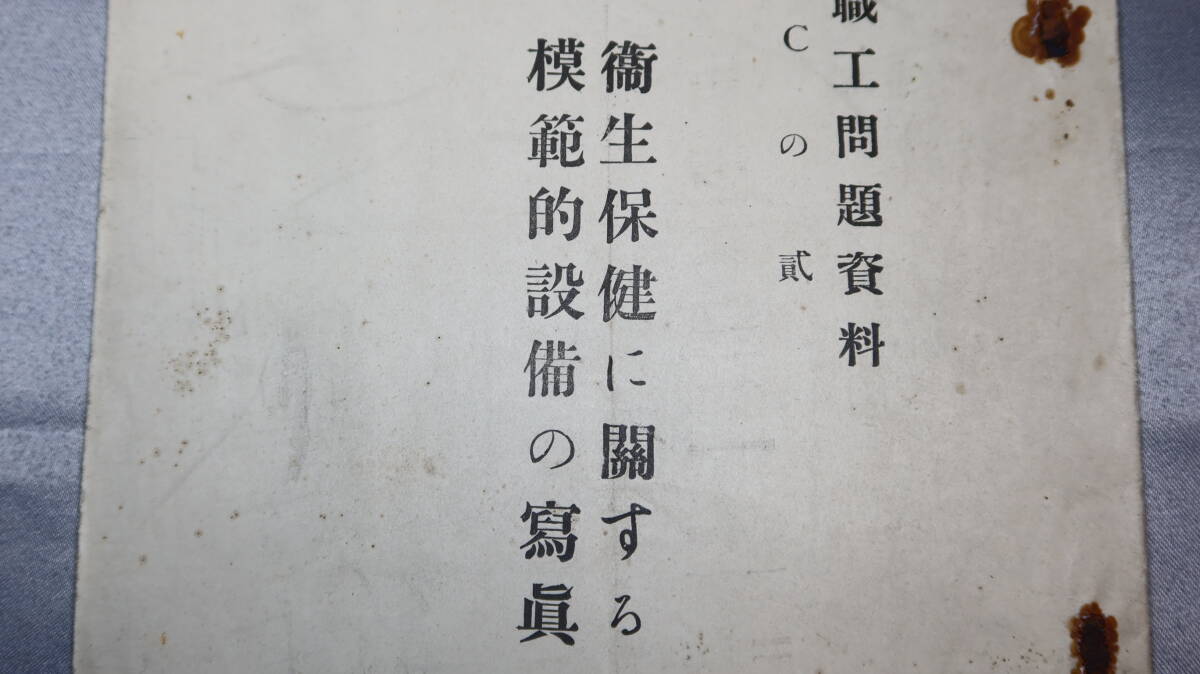 職工問題資料
Cの貳
衞生保健に關する
模範的設備の寫眞